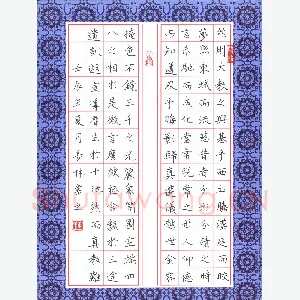 然則大教之興基乎西土騰漢庭而皎
夢照東域而流慈昔者分形分跡之時
言未馳而成化當常現常之世民仰德
而知遵及乎晦影歸真遷儀越世金容
掩色不鏡三千之光麗象開圖空端四
八之相於是微言廣被拯含類於三途
遺訓遐宣導群生於十地然而真教難